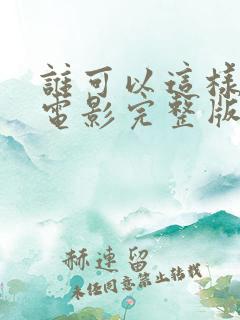 誰可以這樣
電影完整版
赫連留
未任同意禁止转载